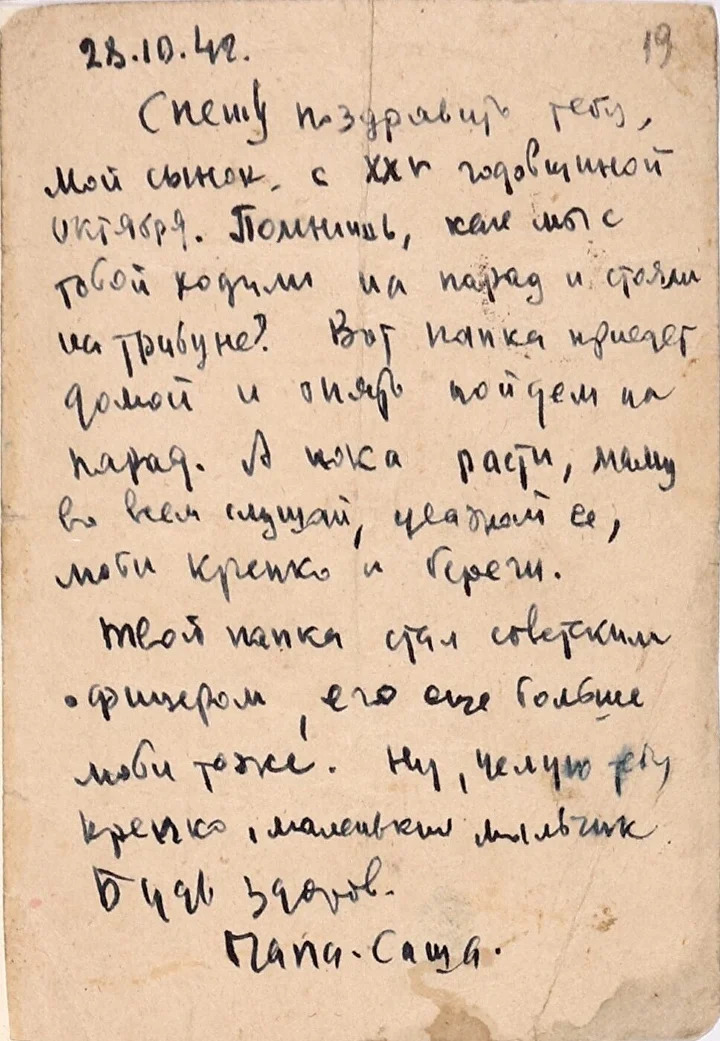 28.10.42.
19
Спешу поздравить тебя,
мой сынок, с XXV годовщиной
октября. Помнишь, как мы с
тобой ходили на парад и стояли
на трибуне? Вот папка приедет
домой и опять пойдем на
парад. А пока расти, маму
во всем слушай, уважай ее,
люби крепко и береги.
Твой папка стал советским
офицером, его еще больше
люби тоже. Ну, целую тебя
крепко, маленький мальчик
Будь здоров.
Папа-Саша.